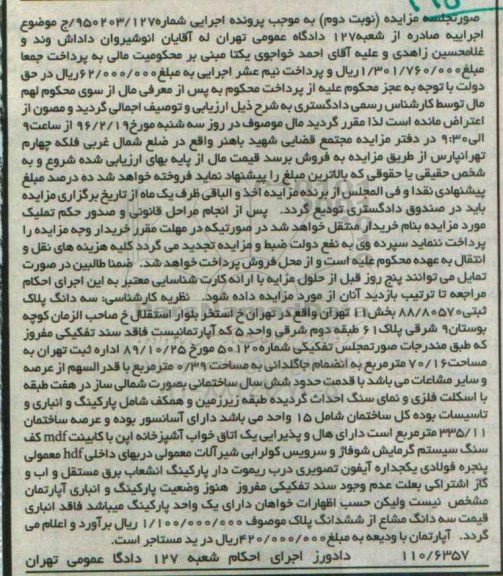 صورتجلسه مزایده (نوبت دوم) به موجب پرونده اجرایی شماره۹۵۰۲۰۳/۱۲۷/ج موضوع
اجراییه صادره از شعبه۱۲۷ دادگاه عمومی تهران له آقایان انوشیروان داداش وند و
غلامحسین زاهدی و علیه آقای احمد خواجوی یکتا مبنی بر محکومیت مالی به پرداخت جمعا
مبلغ۱/۳۰۱/۷۶۰/۰۰۰ریال و پرداخت نیم عشر اجرایی به مبلغ۶۲/۰۰۰/۰۰۰ریال در حق
دولت با توجه به عجز محکوم علیه از پرداخت محکوم به پس از معرفی مال از سوی محکوم لهم
مال توسط کارشناس رسمی دادگستری به شرح ذیل ارزیابی و توصیف اجمالی گردید و مصون از
اعتراض مانده است لذا مقرر گردید مال موصوف در روز سه شنبه مورخ۹۶/۲/۱۹ از ساعت۹
الی۹:۳۰ در دفتر مزایده مجتمع قضایی شهید باهنر واقع در ضلع شمال غربی فلکه چهارم
تهرانپارس از طریق مزایده به فروش برسد قیمت مال از پایه بهای ارزیابی شده شروع و به
شخص حقیقی یا حقوقی که بالاترین مبلغ را پیشنهاد نماید فروخته خواهد شد ده درصد مبلغ
پیشنهادی نقدا و فی المجلس از برنده مزایده اخذ و الباقی ظرف یک ماه از تاریخ برگزاری مزایده
باید در صندوق دادگستری تودیع گردد. پس از انجام مراحل قانونی و صدور حکم تملیک
مورد مزایده بنام خریدار منتقل خواهد شد در صورتیکه در مهلت مقرر خریدار وجه مزایده را
پرداخت ننماید سپرده وی به نفع دولت ضبط و مزایده تجدید می گردد کلیه هزینه های نقل و
انتقال به عهده محکوم علیه است و از محل فروش پرداخت خواهد شد. ضمنا طالبین در صورت
تمایل می توانند پنج روز قبل از حلول مزایه با ارائه کارت شناسایی معتبر به این اجرای احکام
مراجعه تا ترتیب بازدید آنان از مورد مزایده داده شود. نظریه کارشناسی: سه دانگ پلاک
ثبتی۸۸/۸۰۵۷۰ بخش۱۱ تهران واقع در تهران خ استخر بلوار استقلال خ صاحب الزمان کوچه
بوستان۹ شرقی پلاک۶۱ طبقه دوم شرقی واحد ۵ که آپارتمانیست فاقد سند تفکیکی مفروز
که طبق مندرجات صورتمجلس تفکیکی شماره۵۰۱۲۰ مورخ ۸۹/۱۰/۲۵ اداره ثبت تهران به
مساحت۷۰/۱۶ مترمربع به انضمام جاگلدانی به مساحت ۰/۳۹ مترمربع با قدرالسهم از عرصه
و سایر مشاعات می باشد با قدمت حدود شش سال ساختمانی بصورت شمالی ساز در هفت طبقه
با اسکلت فلزی و نمای سنگ احداث گردیده طبقه زیرزمین و همکف شامل پارکینگ و انباری و
تاسیسات بوده کل ساختمان شامل ۱۵ واحد می باشد دارای آسانسور بوده و عرصه ساختمان
۳۳۵/۱۱ مترمربع است دارای هال و پذیرایی یک اتاق خواب آشپزخانه اپن با کابینت mdf کف
سنگ سیستم گرمایش شوفاژ و سرویس کولر ابی شیرآلات معمولی دربهای داخلی hdf معمولی
پنجره فولادی یکجداره آیفون تصویری درب ریموت دار پارکینگ انشعاب برق مستقل و اب و
گاز اشتراکی بعلت عدم وجود سند تفکیکی مفروز هنوز وضعیت پارکینگ و انباری آپارتمان
مشخص نیست ولیکن حسب اظهارات خواهان دارای یک واحد پارکینگ میباشد فاقد انباری
قیمت سه دانگ مشاع از ششدانگ پلاک موصوف ۱/۱۰۰/۰۰۰/۰۰۰ ریال برآورد و اعلام می
گردد. آپارتمان با ودیعه به مبلغ۴۲۰/۰۰۰/۰۰۰ریال در ید مستاجر است.
۱۱۰/۶۳۵۷ دادورز اجرای احکام شعبه ۱۲۷ دادگا عمومی تهران